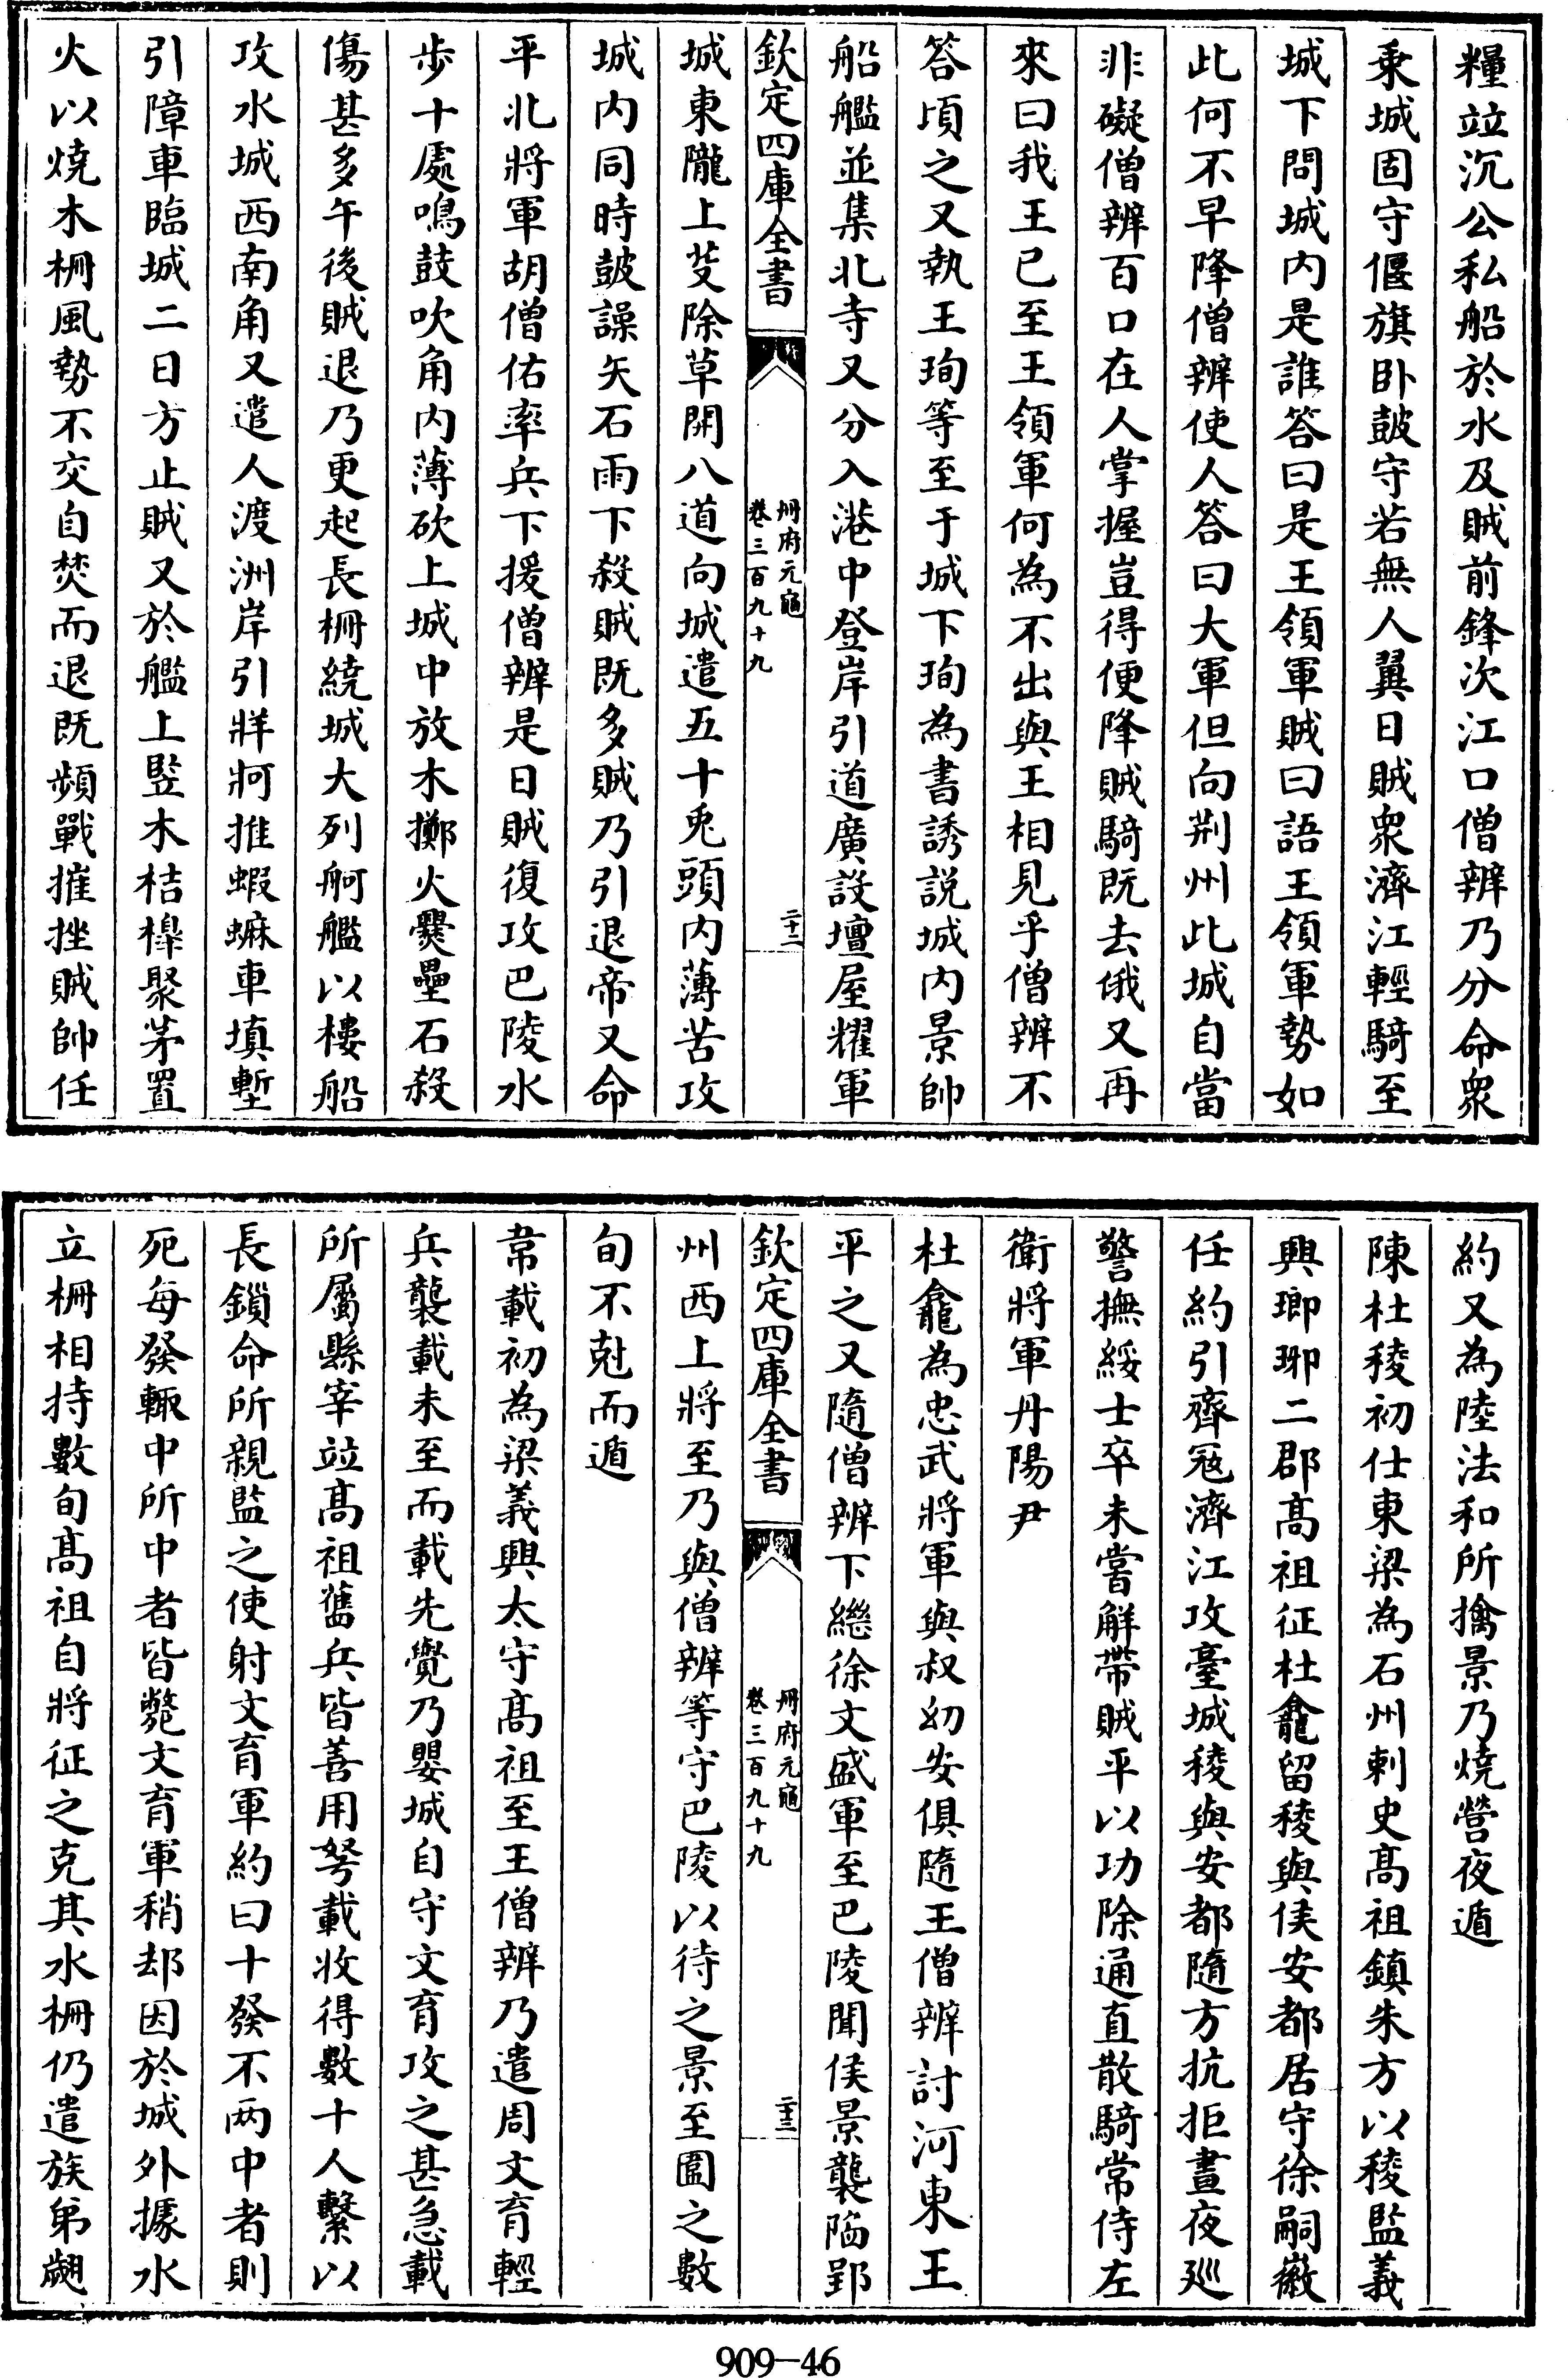 糧竝沉公私船於水及賊前鋒次江口僧辨乃分命衆
乘城固守偃旗卧皷守若無人翼日賊衆濟江輕騎至
城下問城内是誰答曰是王領軍賊曰語王領軍勢如
此何不早降僧辨使人答曰大軍但向荆州此城自當
非礙僧辨百口在人掌握豈得便降賊騎既去俄又再
來曰我王已至王領軍何為不出與王相見乎僧辨不
答頃之又執王珣等至于城下珣為書誘説城内景帥
船艦並集北寺又分入港中登岸引道廣設壇屋耀軍
欽定四庫全書
冊府元龜
卷三百九十九
二十二
城東隴上芟除草開八道向城遣五十兎頭内薄苦攻
城内同時皷譟矢石雨下殺賊既多賊乃引退帝又命
平北將軍胡僧佑率兵下援僧辨是日賊復攻巴陵水
歩十處鳴鼓吹角内薄砍上城中放木擲火爨壘石殺
傷甚多午後賊退乃更起長柵繞城大列舸艦以樓船
攻水城西南角又遣人渡洲岸引牂牁推蝦蟆車填塹
引障車臨城二日方止賊又於艦上竪木桔橰聚茅置
火以燒木柵風勢不交自焚而退既頻戰摧挫賊帥任
約又為陸法和所擒景乃燒營夜遁
陳杜稜初仕東梁為石州刺史髙祖鎮朱方以稜監義
興瑯琊二郡髙祖征杜龕留稜與侯安都居守徐嗣徽
任約引齊寇濟江攻臺城稜與安都隨方抗拒晝夜廵
警撫綏士卒未嘗解帶賊平以功除通直散騎常侍左
衛將軍丹陽尹
杜龕為忠武將軍與叔幼安俱隨王僧辨討河東王
平之又隨僧辨下繼徐文盛軍至巴陵聞侯景襲陷郢
欽定四庫全書
冊府元龜
卷三百九十九
二十三
州西上將至乃與僧辨等守巴陵以待之景至圍之數
旬不尅而遁
韋載初為梁義興太守髙祖至王僧辨乃遣周文育輕
兵襲載未至而載先覺乃嬰城自守文育攻之甚急載
所屬縣宰竝髙祖舊兵皆善用弩載收得數十人繫以
長鎻命所親監之使射文育軍約曰十發不两中者則
死每發輙中所中者皆斃文育軍稍却因於城外據水
立柵相持數旬髙祖自將征之克其水柵仍遣族弟翽
909-46